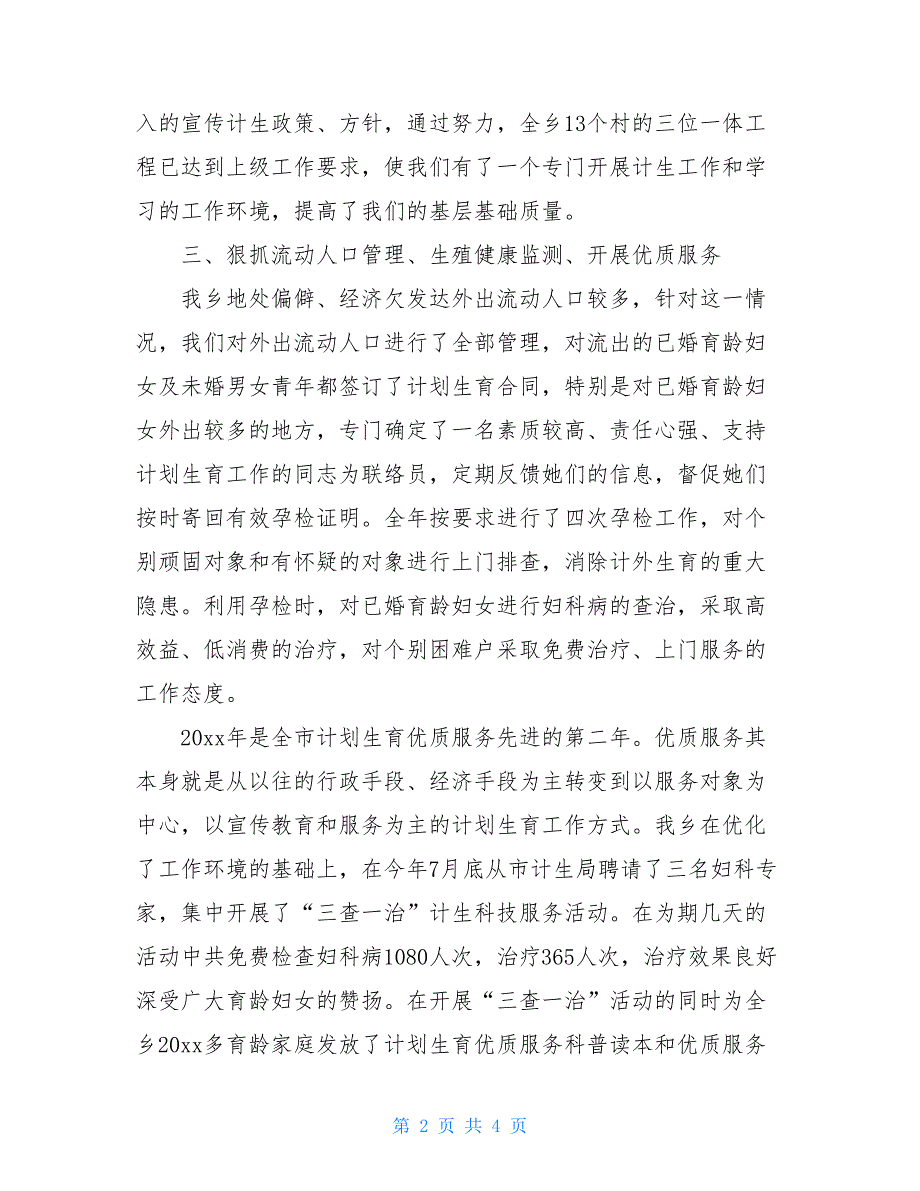 入的宣传计生政策、方针，通过努力，全乡13个村的三位一体工
程已达到上级工作要求，使我们有了一个专门开展计生工作和学
习的工作环境，提高了我们的基层基础质量。
三、狠抓流动人口管理、生殖健康监测、开展优质服务
我乡地处偏僻、经济欠发达外出流动人口较多，针对这一情
况，我们对外出流动人口进行了全部管理，对流出的已婚育龄妇
女及未婚男女青年都签订了计划生育合同，特别是对已婚育龄妇
女外出较多的地方，专门确定了一名素质较高、责任心强、支持
计划生育工作的同志为联络员，定期反馈她们的信息，督促她们
按时寄回有效孕检证明。全年按要求进行了四次孕检工作，对个
别顽固对象和有怀疑的对象进行上门排查，消除计外生育的重大
隐患。利用孕检时，对已婚育龄妇女进行妇科病的查治，采取高
效益、低消费的治疗，对个别困难户采取免费治疗、上门服务的
工作态度。
20xx年是全市计划生育优质服务先进的第二年。优质服务其
本身就是从以往的行政手段、经济手段为主转变到以服务对象为
中心，以宣传教育和服务为主的计划生育工作方式。我乡在优化
了工作环境的基础上，在今年7月底从市计生局聘请了三名妇科专
家，集中开展了“三查一治”计生科技服务活动。在为期几天的
活动中共免费检查妇科病1080人次，治疗365人次，治疗效果良好
深受广大育龄妇女的赞扬。在开展“三查一治”活动的同时为全
乡20xx多育龄家庭发放了计划生育优质服务科普读本和优质服务
第 2 页 共 4 页